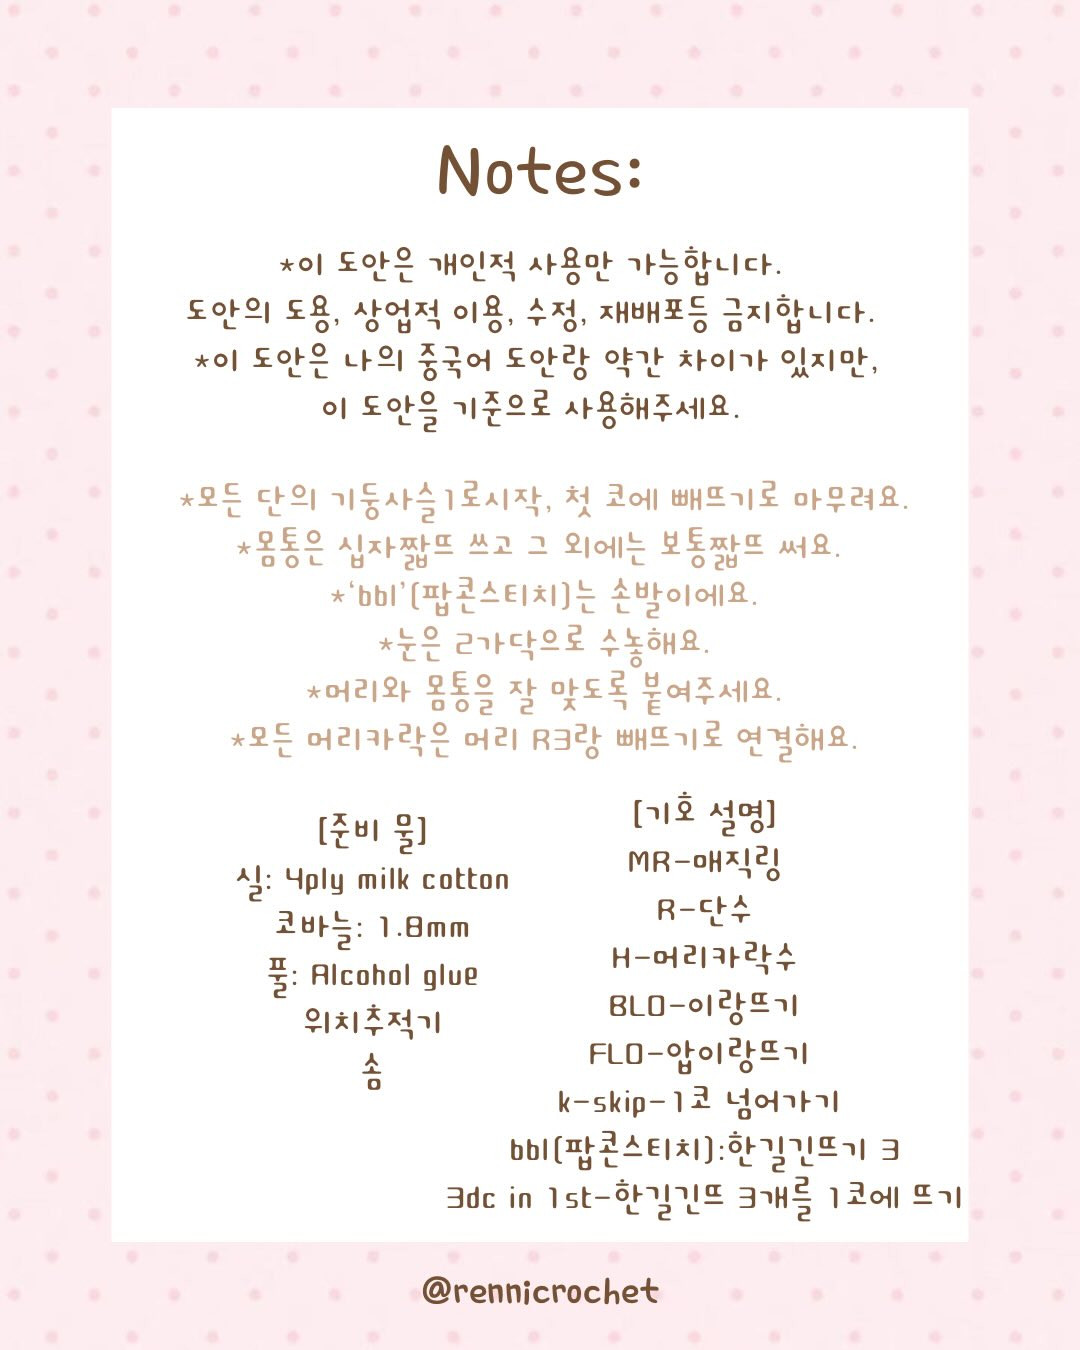 Notes:
*이 도안은 개인적 사용만 가능합니다.
도안의 도용, 상업적 이용, 수정, 재배포등 금지합니다.
*이 도안은 나의 중국어 도안랑 약간 차이가 있지만,
이 도안을 기준으로 사용해주세요.
*모든 단의 기둥사슬1로시작, 첫 코에 빼뜨기로 마무려요.
*몸통은 십자짧뜨 쓰고 그 외에는 보통짧뜨 써요.
*‘bbl’(팝콘스티치)는 손발이에요.
*눈은 2가닥으로 수놓해요.
*머리와 몸통을 잘 맞도록 붙여주세요.
*모든 머리카락은 머리 R3랑 빼뜨기로 연결해요.
[준비 물]
실: 4ply milk cotton
코바늘: 1.8mm
풀: Alcohol glue
위치추적기
솜
[기호 설명]
MR-매직링
R-단수
H-머리카락수
BLO-이랑뜨기
FLO-압이랑뜨기
k-skip-1코 넘어가기
bbl(팝콘스티치):한길긴뜨기 3
3dc in 1st-한길긴뜨 3개를 1코에 뜨기
@rennicrochet